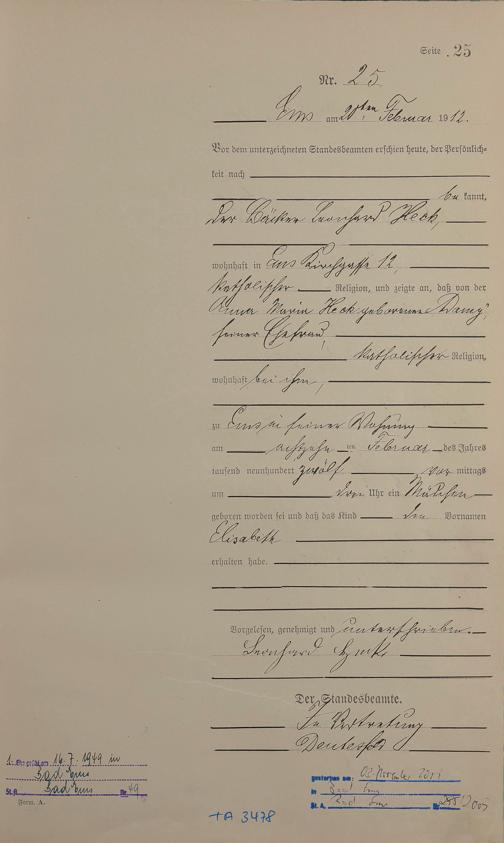 Seite 25
Nr. 25
Ems am 20ten Februar 1912.
Vor dem unterzeichneten Standesbeamten erschien heute, der Persönlich-
keit nach
bekannt,
der Bäcker Leonhard Heck,
wohnhaft in Ems Kirchgasse 12,
katholischer Religion, und zeigte an, daß von der
Anna Maria Heck geborenen
seiner Ehefrau,
katholischer Religion,
wohnhaft bei ihm,
zu Ems in seiner Wohnung
am achtzehnten Februar des Jahres
tausend neunhundert zwölf vor mittags
um drei Uhr ein Mädchen
geboren worden sei und daß das Kind den Vornamen
Elisabeth
erhalten habe.
Vorgelesen, genehmigt und unterschrieben.
Leonhard Heck.
Der Standesbeamte.
In Vertretung
1. 16.7.1949 in
Bad Ems
St.A. Bad Ems Nr. 49
Form. A.
gestorben am: 03. November
in Bad Ems
St. A. Bad Ems Nr.
TA 3478